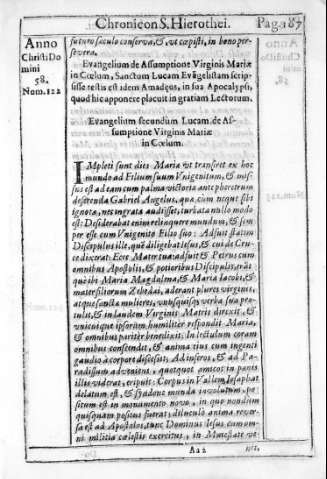 Chronicon S. Hierothei. Pag. 87
Anno
Christi Do
mini
58.
Num. 122
futuro sæculo conserva, &, vt cæpisti, in bono per
severa.
Evangelium de Assumptione Virginis Mariæ
in Cœlum, Sanctum Lucam Evãgelistam scrip-
sisse testis est idem Amadeus, in sua Apocalypsi,
quod hic apponere placuit in gratiam Lectorum.
Evangelium secundum Lucam de As-
sumptione Virginis Mariæ
in Cœlum.
IMpleti sunt dies Mariæ vt transiret ex hoc
mundo ad Filium suum Vnigenitum, & mis-
sus est ad eam cum palma victoria ante
Gabriel Angelus, qua cum neque sibi
ignota, nec ingrata audisset, turbata nullo modo
est: Desiderabat enim relinquere mundum, & sem
per esse cum Vnigenito Filio suo: Adsuit statim
Discipulus ille, quē diligebat Iesus, & cui de Cru-
ce dixerat: Ecce Mater tua: adsuit & Petrus cum
omnibus Apostolis, & potioribus Discipulis, erāt
quoè ibi Maria Magdalena, & Maria Iacobi, &
mater filiorum Zebedæi, aderant plures virgines,
atque sanctæ mulieres, vniusquisq; verba sua pro-
tulit, & in laudem Virginis Matris direxit, &
vnicuique ipsorum humiliter respondit Maria,
& omnibus pariter benedixit: In lectulum coram
omnibus conscendit, & anima eius cum ingenti
gaudio à corpore discessit: Ad inferos, & ad Pa-
radisum advenit, quotquot amicos in panis
illis viderat, eripuit: Corpus in Vallem Iosaphat
delatum est, & syndone munda involutum, po-
situm est in monumento novo, in quo nondum
quisquam positus fuerat: diluculo anima rever-
sa est ad Apostolos, tunc Dominus Iesus cum om-
ni militia cælestis exercitus, in Maiestate ve-
Aa 2